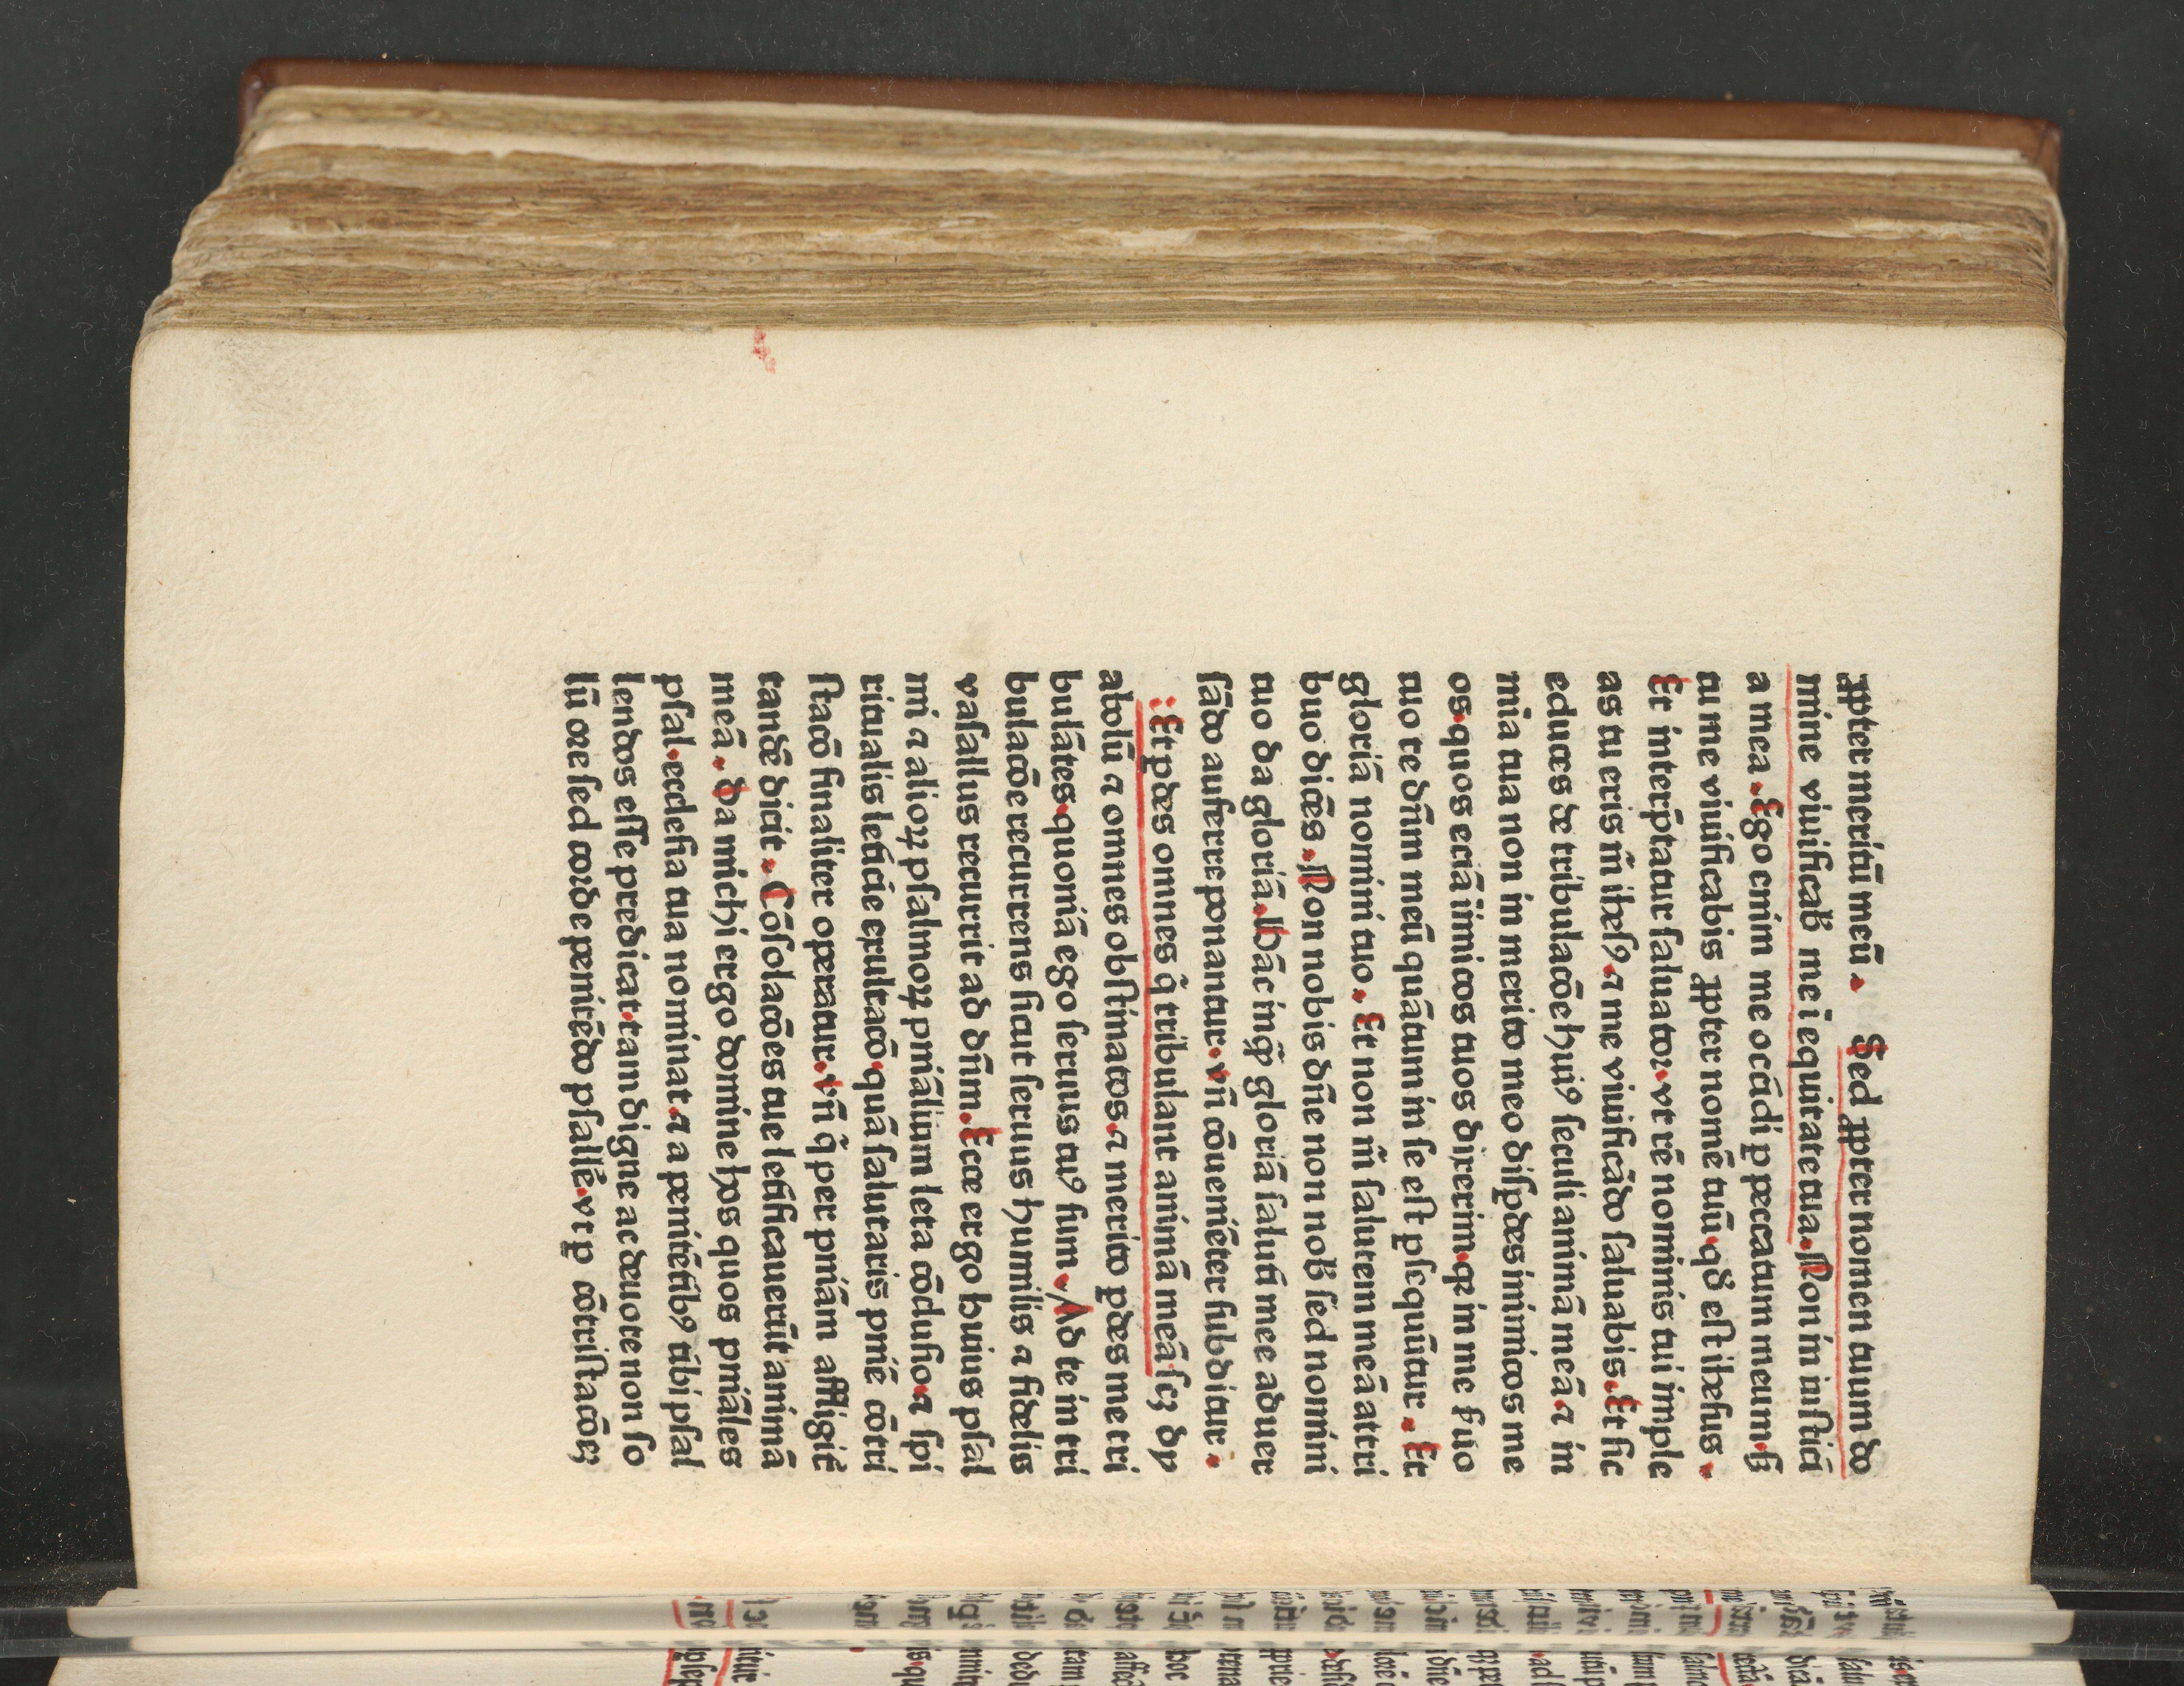 ꝓpter meritū meū. Sed ꝓpter nomen tuum do
mine viuificab̄ me ī equitate tua. Non in iusticī
a mea. Ego enim me occidi p peccatum meum ſꝫ
tu me viuificabis ꝓpter nomē tuū. qd̄ eſt iheſus.
Et interp̄tatur ſaluator. vt rē nominis tui imple
as tu eris m̄ iheſꝰ. ⁊ me viuificādo ſaluabis. Et ſic
educes de tribulacōe huiꝰ ſeculi animā meā. ⁊ in
mīa tua non in merito meo diſꝑdes inimicos me
os. quos eciā īimicos tuos dixerim. qꝛ in me ſuo
tuo te dn̄m meū quātum in ſe eſt ꝑſequūtur. Et
gloriā nomini tuo. Et non m̄ ſalutem meā attri
buo dices. Non nobis dn̄e non nob̄ ſed nomini
tuo da gloriā. Hāc inq̄ gloriā ſaluti mee aduer
ſādo auferre ponantur. vn̄ cōueniēter ſubditur.
Et ꝑdes omnes q̄ tribulant animā meā. ſcꝫ dy
abolū ⁊ omnes obſtinatos. ⁊ merito ꝑdes me tri
bulātes. quoniā ego ſeruus tuꝰ ſum. Ad te in tri
bulacōe recurrens ſicut ſeruus humilis ⁊ fidelis
vaſallus recurrit ad dn̄m. Ecce ergo huius pſal
mi ⁊ alioꝝ pſalmoꝝ pniāliūm leta cōcluſio. ⁊ ſpi
ritualis leticie exultacō. quā ſalutaris pnīe cōtri
ſtacō finaliter operatur. vn̄ q̄ per pniām affligit̄
tandē dicit. Cōſolacōes tue letificauerūt animā
meā. da michi ergo domine hos quos pniāles
pſal. eccleſia tua nominat. ⁊ a penitētibꝰ tibi pſal
lendos eſſe predicat. tam digne ac deuote non ſo
lū ore ſed corde penitēdo pſallē. vt ꝑ cōtriſtacōeꝫ